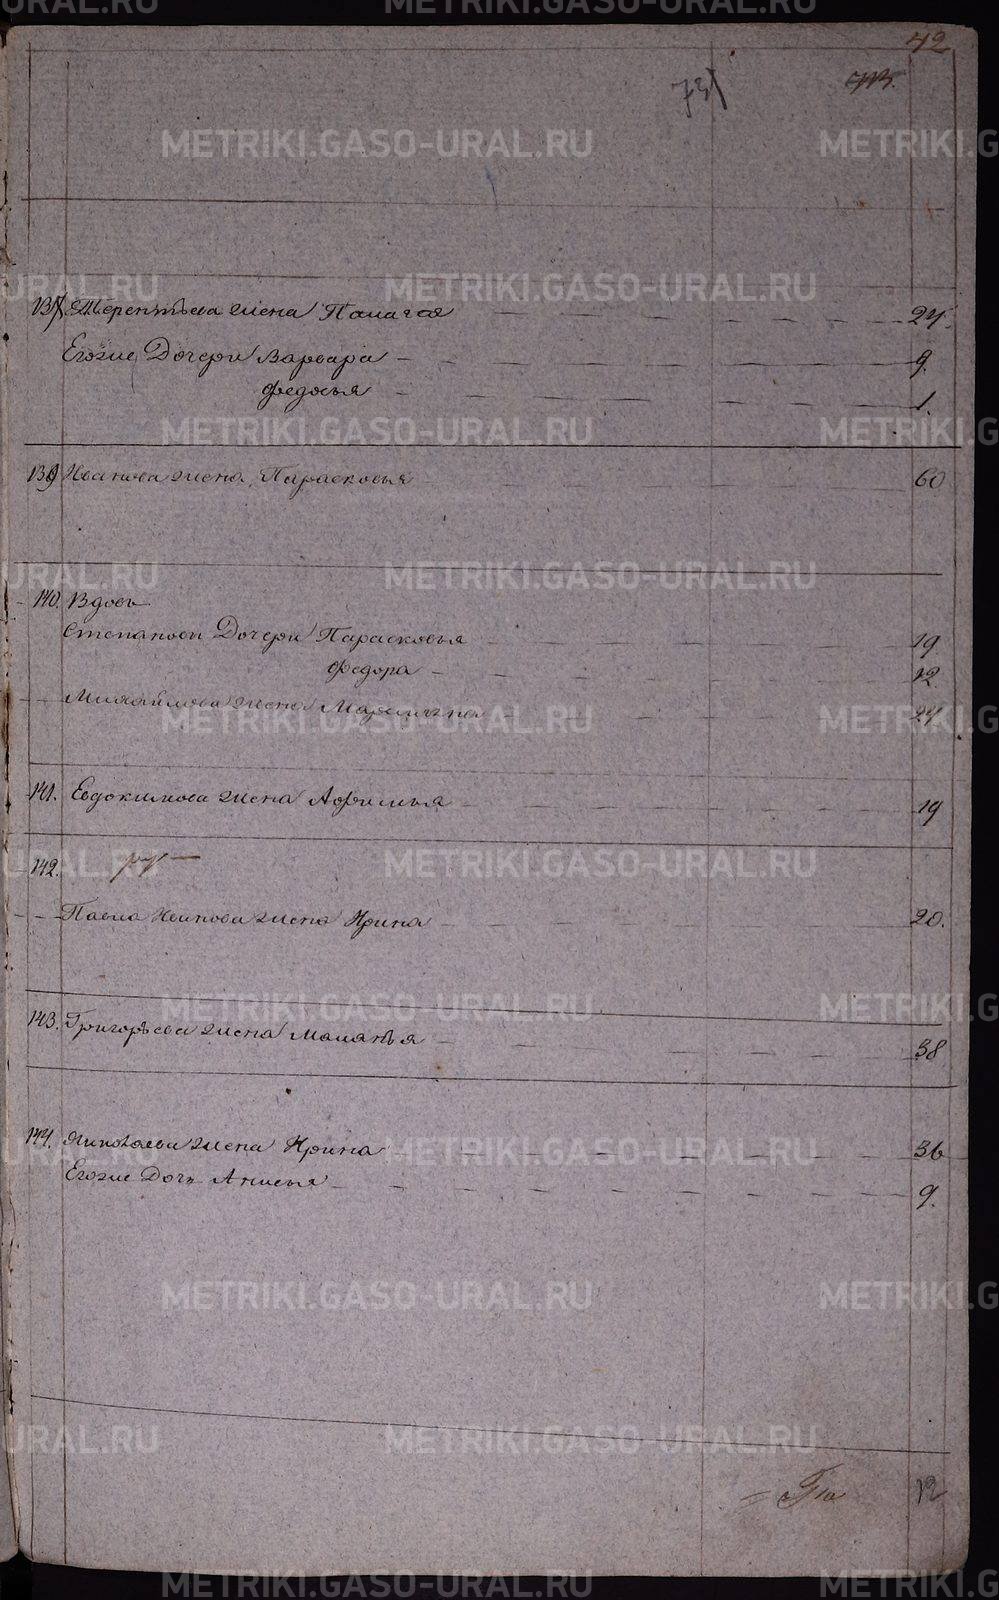 42
73
137. Терентьева жена Палагея 24.
Егоже Дочери Варвара 9.
Федосья 1.
139 Иванова жена Парасковья 60
140. Вдовъ
Степановы Дочери Парасковья 19
Федора 12
Михайлова жена Маремьяна 24
141. Евдокимова жена Афимья 19
142.
Павла Исипова жена Ирина 20.
143. Григорьева жена Маланья 38
144. Николаева жена Ирина 36
Егоже Дочь Анисья 9.
12
METRIKI.GASO-URAL.RU